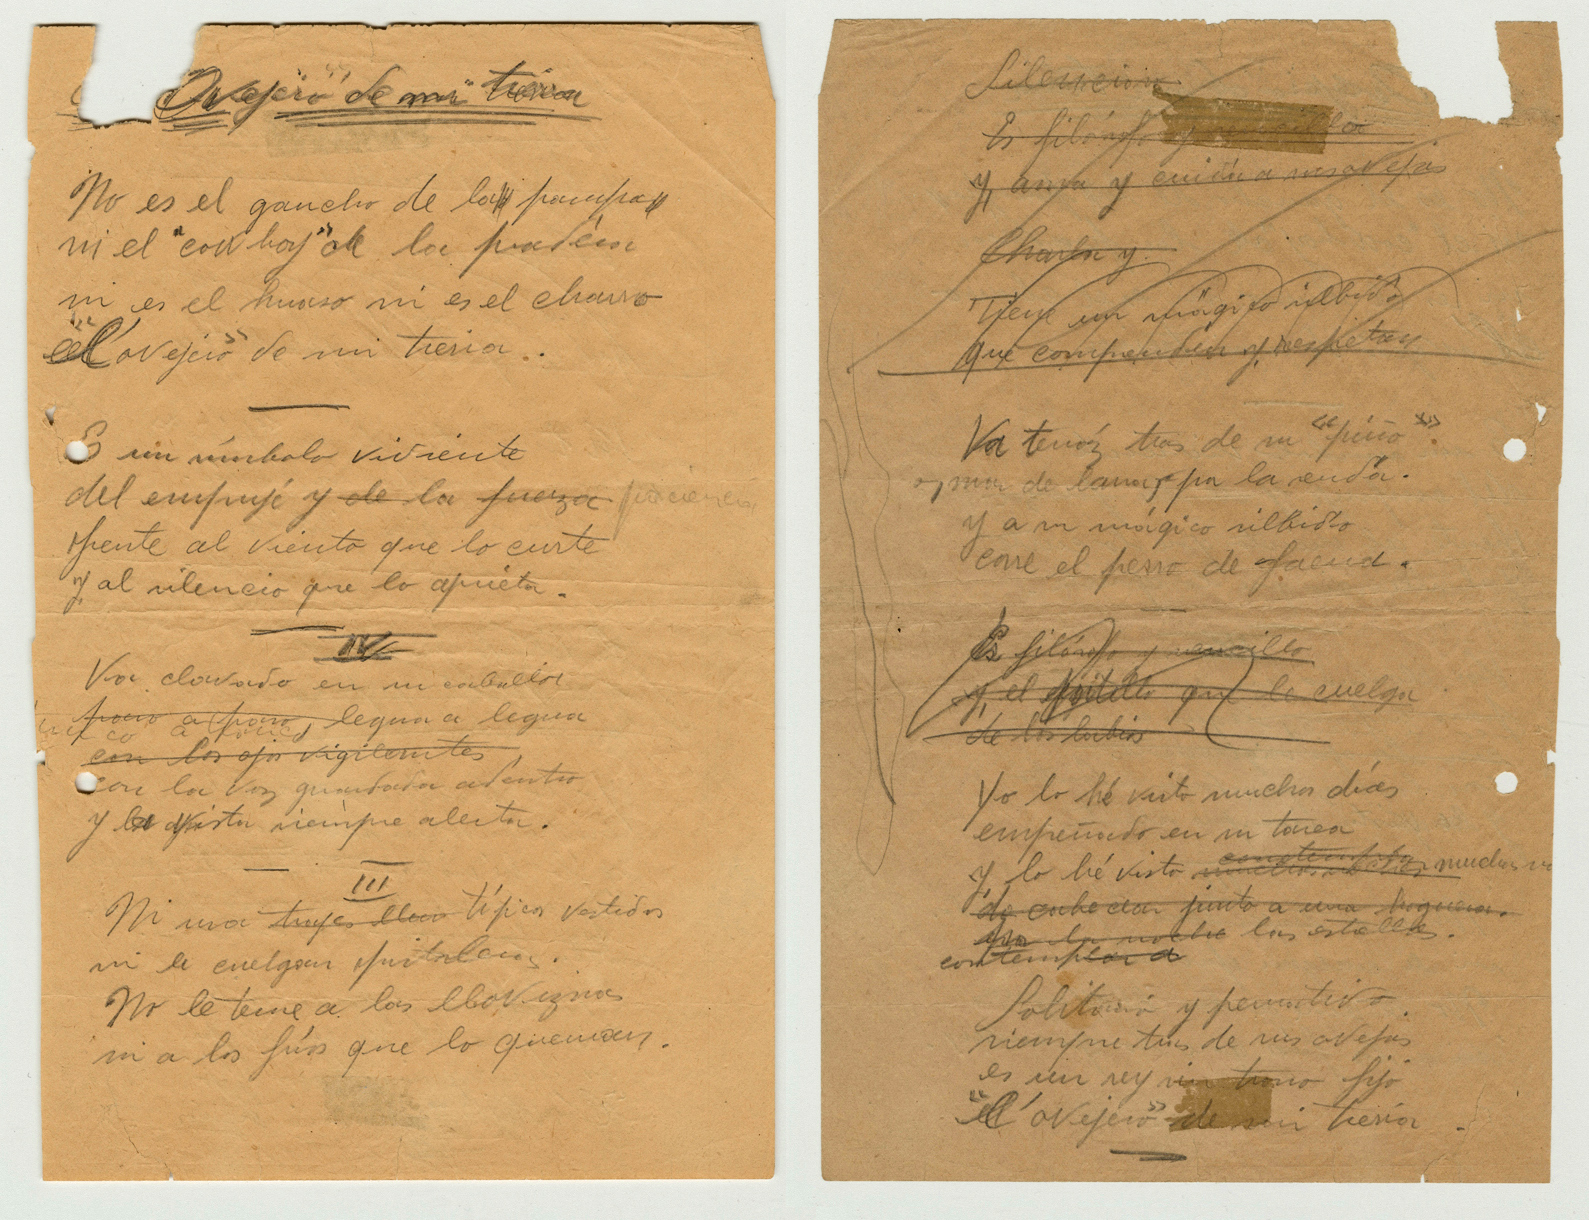 "Ovejero" de mi tierra
No es el gaucho de la pampa
ni el "cowboy" de la pradera
ni es el huaso ni es el charro
"el ovejero" de mi tierra..
Es un símbolo viviente
del empuje y de la fuerza paciencia
frente al viento que lo curte
y al silencio que lo aprieta.
IV
Va clavado en su caballo
paso a paso, legua a legua
poco a poco
con los ojos vigilantes
con la voz guardada adentro
y la vista siempre alerta.
III
Ni usa trajes típicos vestidos
ni le cuelgan
No le teme a las lloviznas
ni a los fríos que lo queman.
Silencioso
Es filósofo y sencillo
y, ama y cuida a sus ovejas
Charla y
Tiene un mágico silbido
que comprenden y respetan
Va tenáz tras de su "piño".
mar de lana, por la senda.
y a su mágico silbido
corre el perro de faena.
Es filósofo y sencillo
y, el que le cuelga
de los labios
Yo lo hé visto muchos días
empeñado en su tarea
contempla
y lo hé visto muchas noches muchas
de cabecear junto a una hoguera.
por la noche las estrellas.
contemplar a
Solitario y pensativo
siempre tras de sus ovejas
es un rey sin trono fijo
"el ovejero" de mi tierra.